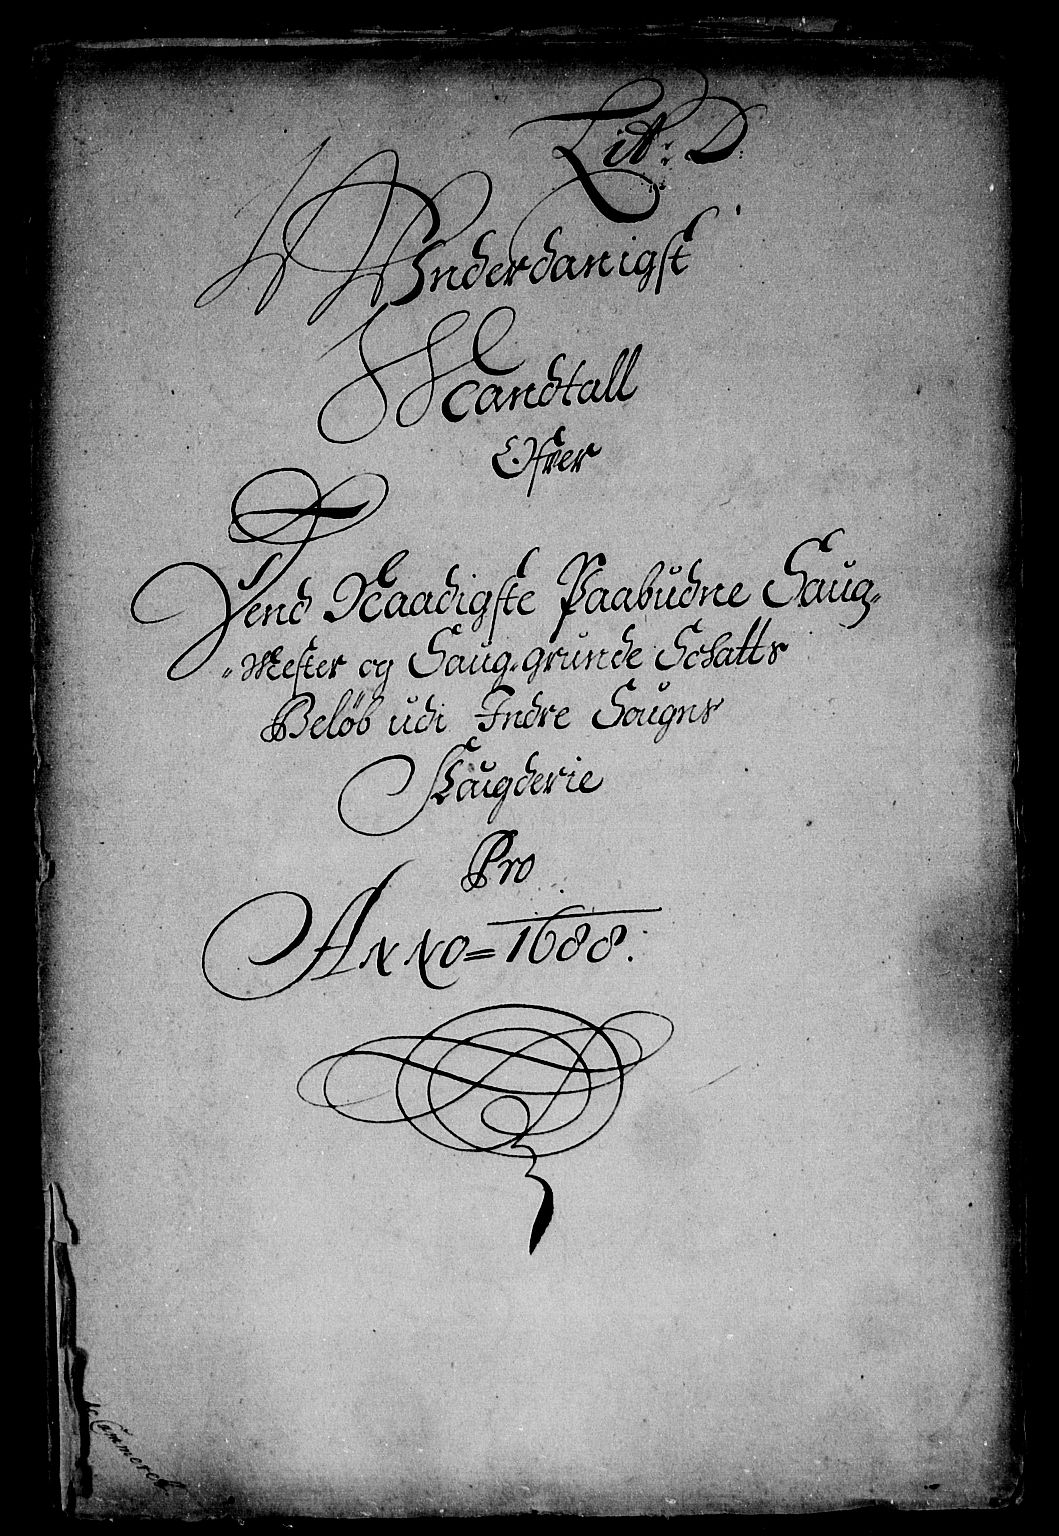 Litt: D:
Underdanigst
Mandtall
Ofver
Dend Naadigste Paabudne Saug-
"Mester og Saug-grunde Schatts
Beløb udi Indre Sougns
Faugderie
Pro
Anno = 1688.
Cammeret